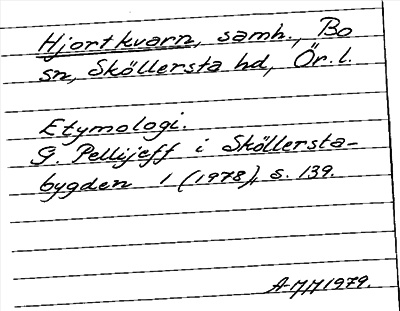 Hjortkvarn, samh., Bo
sn, Sköllersta hd, Ör. l.
Etymologi.
G. Pellijeff i Sköllersta-
bygden 1 (1978), s. 139.
A-MM 1979.